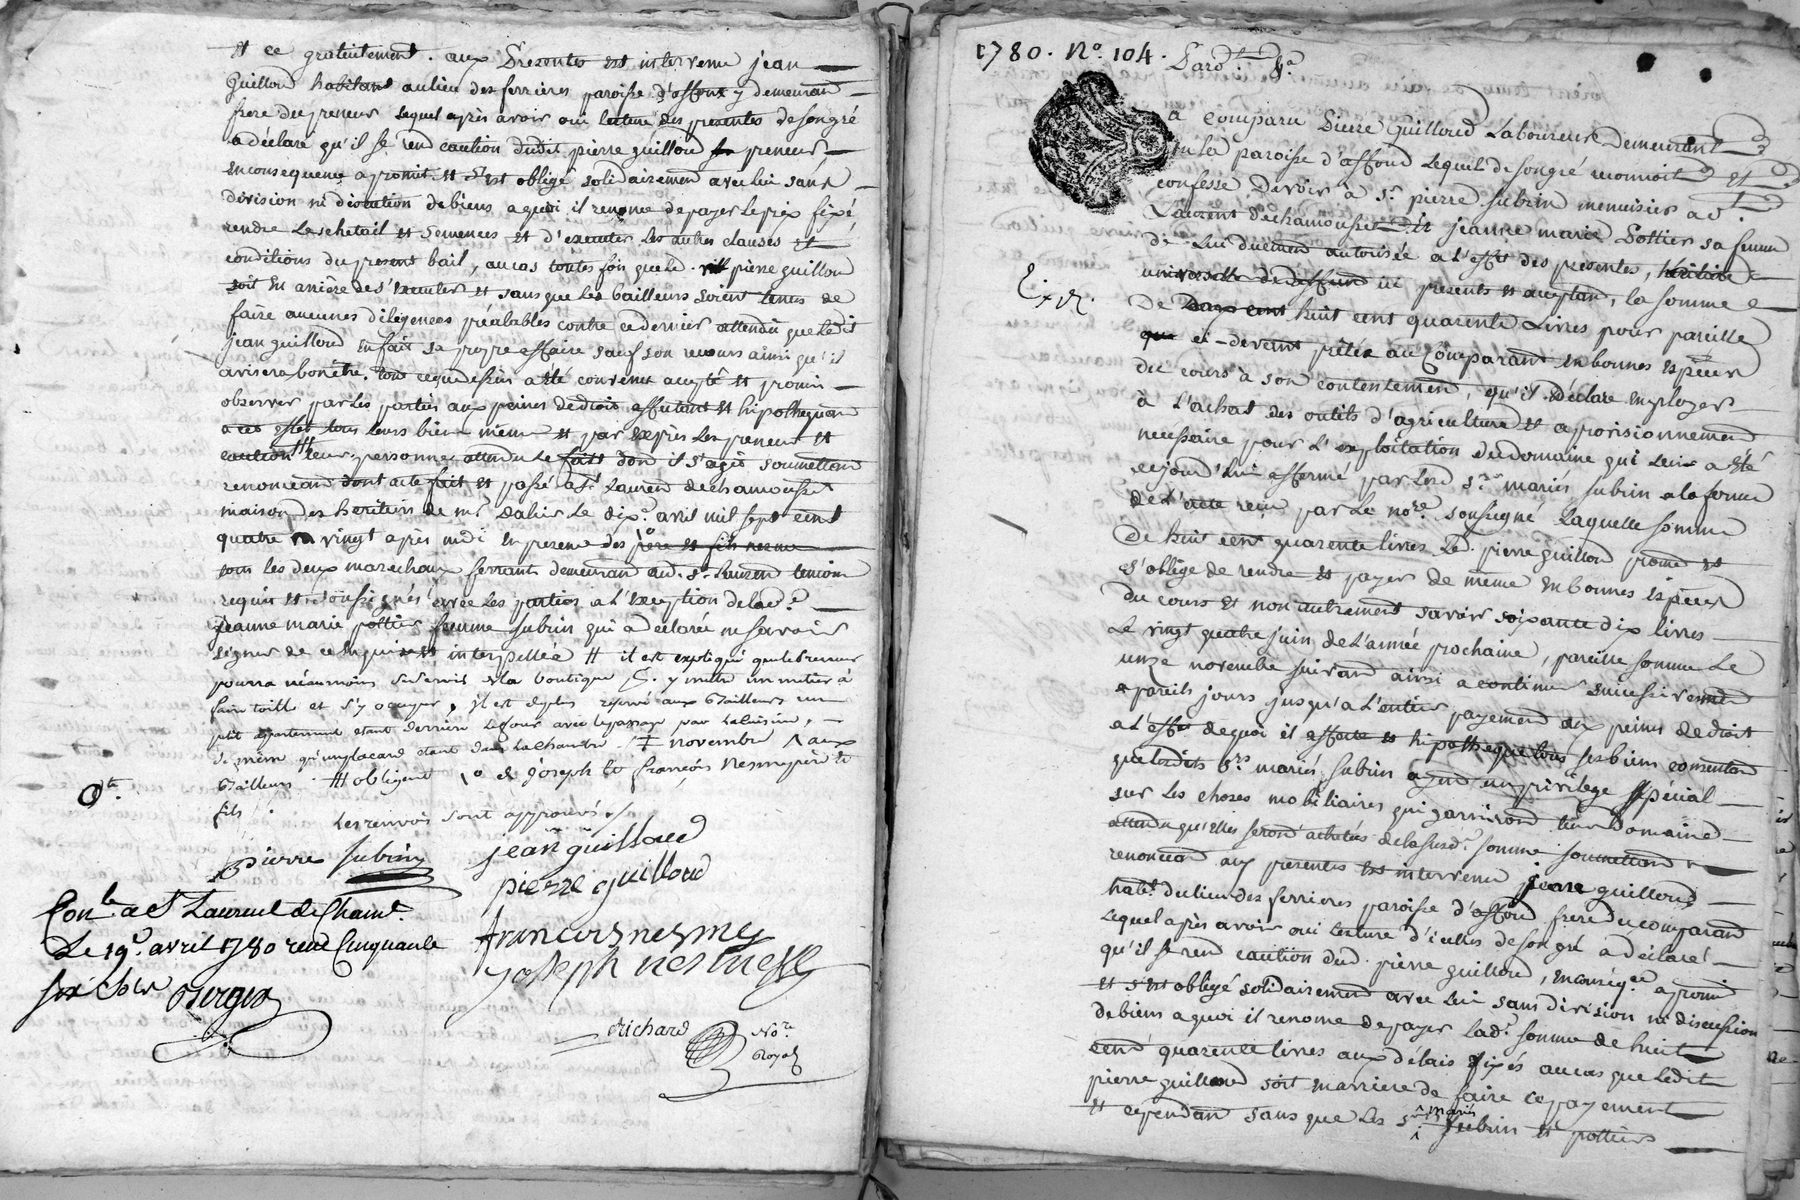 Et ce gratuitement. aux Presentes est intervenu jean
Guilloud habitant au lieu des ferrieres paroisse d'affoux y demeurant
frere du preneur lequel après avoir oui lecture des presentes de son gré
a déclaré qu'il se rend caution dudit pierre guilloud preneur,
en consequence a promit et s'est obligé solidairement avec lui sans
division ni discution de biens a quoi il renonce de payer le prix fixé,
rendre le chetail et semences et d'executer les autres clauses et
conditions du present bail, au cas toutes fois que led. pierre guilloud
soit en arriere de s'executer et sans que les bailleurs soient tenus de
faire aucunes diligences préalables contre ce dernier attendu que ledit
jean guilloud en fait sa propre affaire sauf son recours ainsi qu'il
avisera bon être. tout ce que dessus a été convenu accepté et promis
observer par les parties aux peines de droit affectant et hipothequant
a cet effet tous leurs biens même et par exprès les preneur et
caution leurs personnes attendu le fait dont il s'agit soumettant
renonceant dont acte fait et passé a St. Laurent de chamousset
maison des heritiers de mr. Dalin le dix avril mil sept cent
quatre vingt apres midi en presence des père et fils nesme
tous les deux marechaux ferrants demeurant aud. St. Laurent temoins
requis et soussignés avec les parties a l'exception de lad.
jeanne marie pottier femme subrin qui a declarée ne savoir
signer de ce enquise et interpellée # il est expliqué que le preneur
pourra néanmoins se servir de la boutique & y mettre un metier à
faire toille et s'y occuper, il est de plus reservé aux Bailleurs un
petit apartement etant derriere le four avec le passage par la cuisine,
de même qu'un placard etant dans la chambre # novembre aux
Bailleurs # obligent 1o & joseph et françois Nesme père et
fils
les renvois sont approuvés
Pierre subrin jean guilloud
pierre guilloud
Conlé a St Laurent de Cham.
Le 19e. avril 1780 reçu Cinquante
six sols Berger
francois nesme
joseph nesme
Richard Nore.
Royal
1780. No. 104. Pard.
a comparu Pierre Guilloud Laboureur demeurant
en la paroisse d'affoud lequel de son gré reconnoit et
confesse devoir à Sr. pierre subrin menuisier a St.
Laurent de chamousset et jeanne marie Pottier sa femme
de lui duement autorisée a l'effet des presentes,
ici presents et acceptant, la somme
Ex.
De huit cent quarente Livres pour pareille
ci-devant prêtée au Comparant en bonnes espèces
du cours à son contentement, qu'il déclare employer
à l'achat des outils d'agriculture et aprovisionnement
necessaire pour l'exploitation du domaine qui leur a été
cejourd'hui affermé par lesd. Srs. mariés subrin a la forme
de l'acte reçu par le nore. soussigné laquelle somme
De huit cent quarente livres led. pierre guilloud promet et
s'oblige de rendre et payer de même en bonnes espèces
du cours et non autrement savoir soixante dix livres
Le vingt quatre juin de l'année prochaine, pareille somme le
onze novembre suivant ainsi a continuer successivement
a pareils jours jusqu'a l'entier payement aux peines de droit
a l'effet de quoi il affecte et hipotheque tous ses biens consentant
que lesdits Srs mariés subrin ayent un privilége spécial
sur les choses mobiliaires qui garniront leur Domaine
attendu qu'elles seront achetées de la susd. somme soumettant
renonceant aux presentes est intervenu jean guilloud
habt. du lieu des ferrieres paroisse d'affoud frere du comparant
lequel après avoir oui lecture d'icelles de son gré a déclaré
qu'il se rend caution dud. pierre guilloud, en conséq.ce a promit
et s'est obligé solidairement avec lui sans division ni discussion
de biens a quoi il renonce de payer lad. somme de huit
cent quarente livres aux délais fixés au cas que ledit
pierre guilloud soit en arriere de faire ce payement
et cependant sans que les Srs mariés subrin et pottier